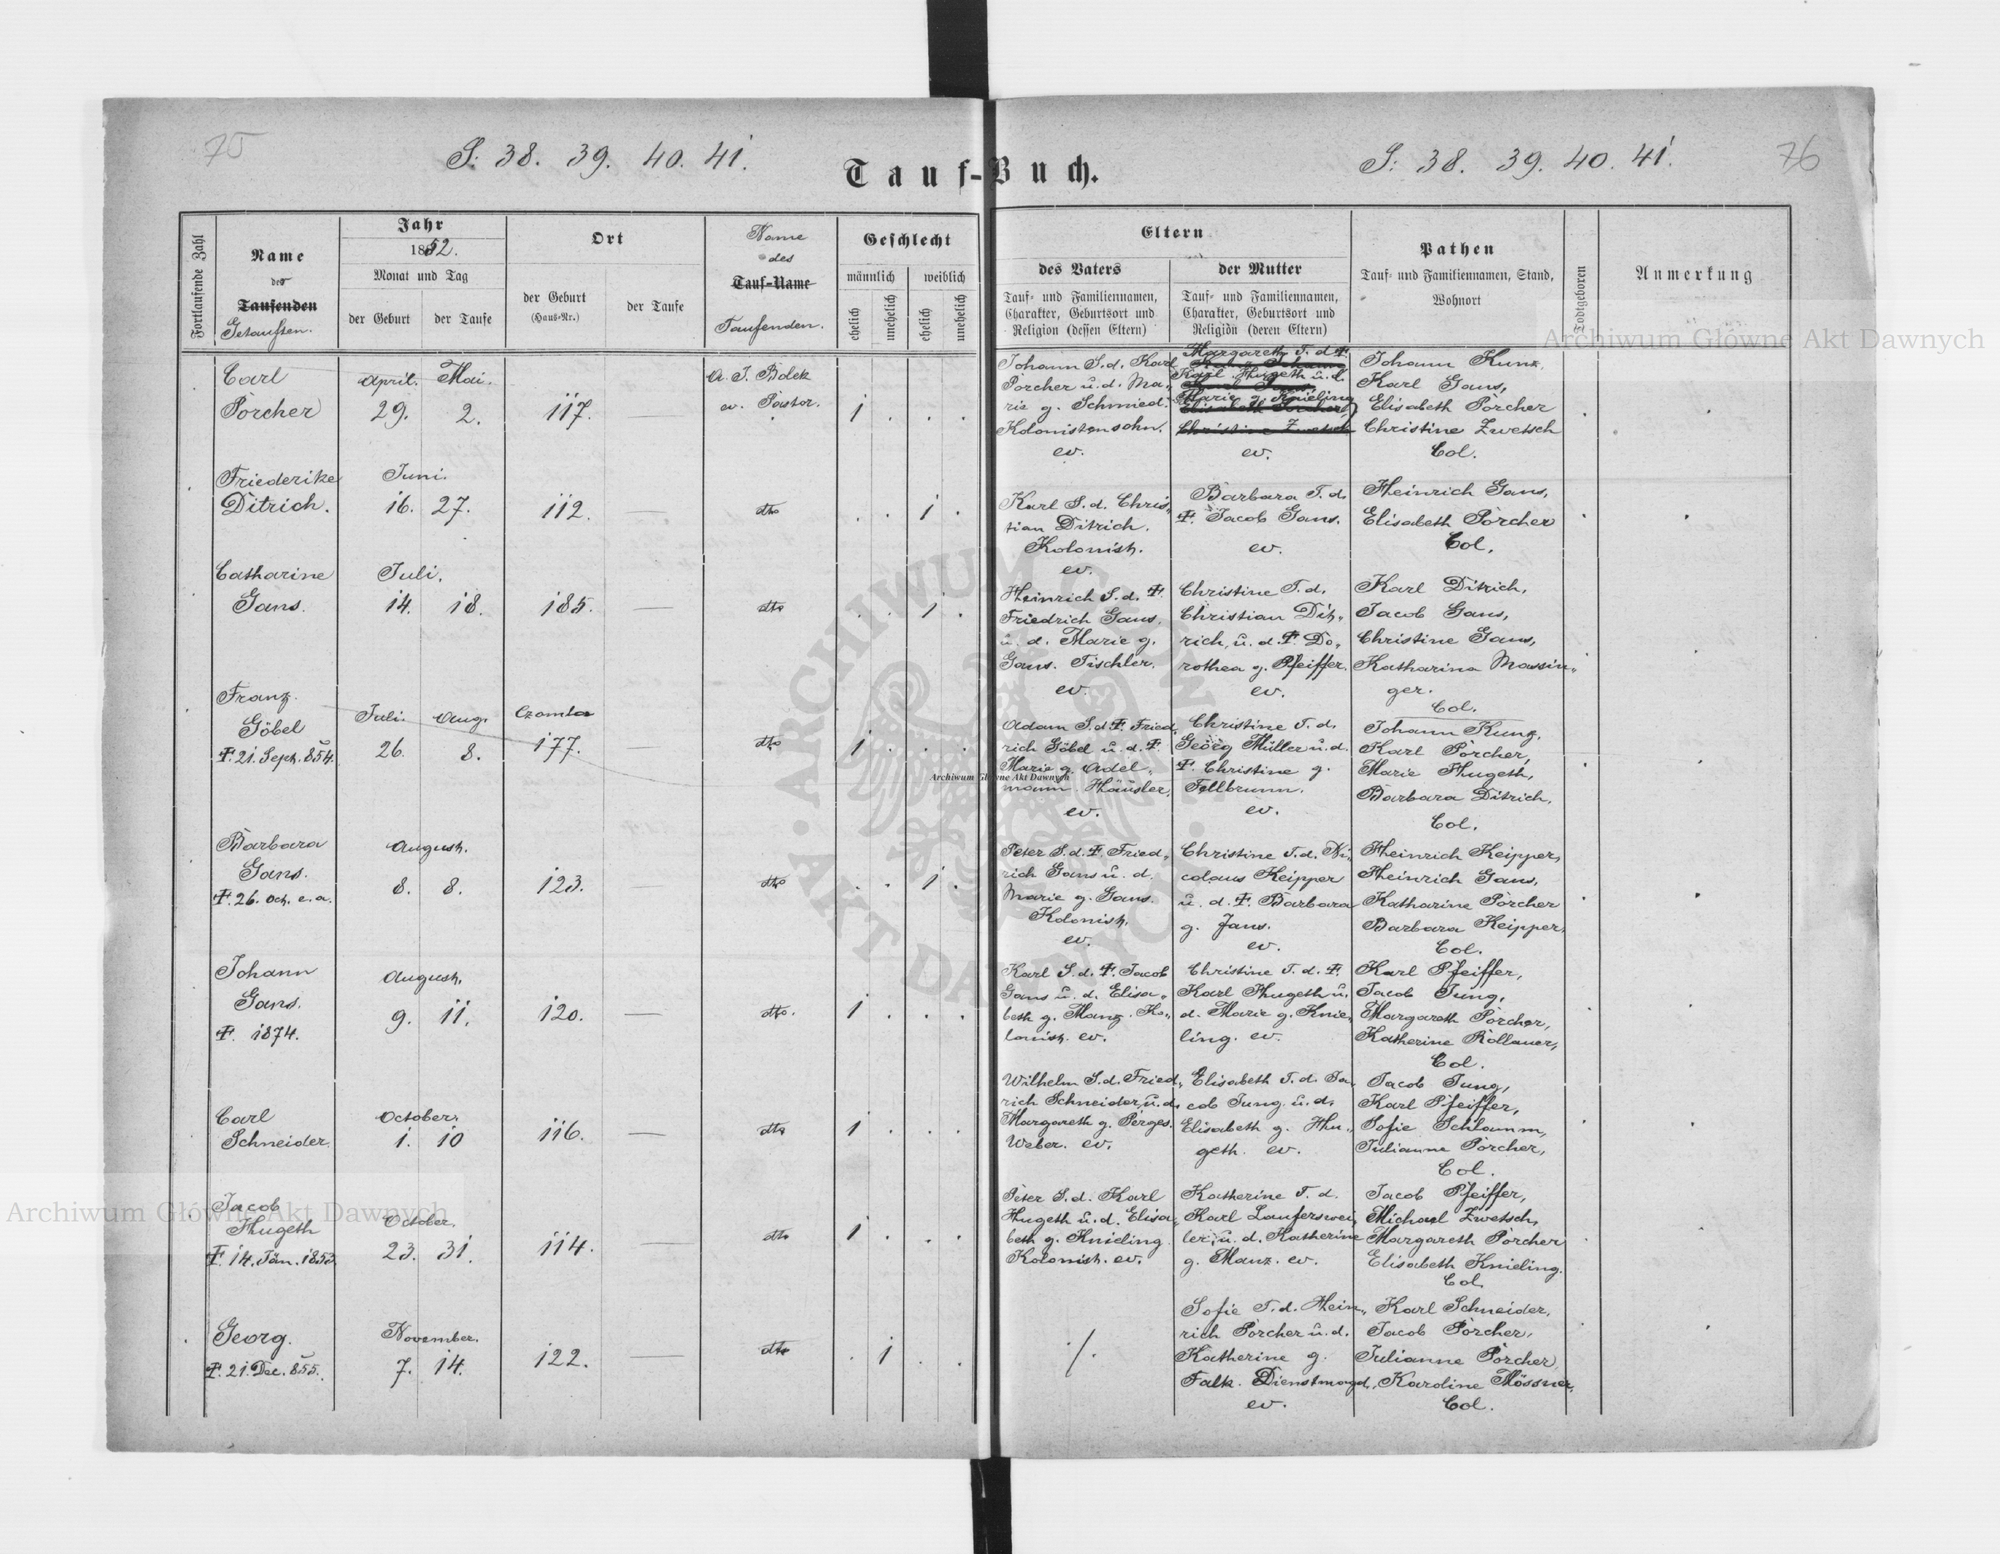 75
S: 38. 39. 40. 41.
Tauf-Buch.
S: 38. 39. 40. 41.
76
Fortlaufende Zahl
Name
des
Taufenden
Getauften.
Jahr
1852.
Monat und Tag
der Geburt
der Taufe
Ort
der Geburt
(Haus-Nr.)
der Taufe
Name
des
Tauf-Name
Taufenden.
Geschlecht
männlich
weiblich
ehelich
unehelich
ehelich
unehelich
Eltern
des Vaters
Tauf- und Familiennamen,
Charakter, Geburtsort und
Religion (dessen Eltern)
der Mutter
Tauf- und Familiennamen,
Charakter, Geburtsort und
Religion (deren Eltern)
Pathen
Tauf- und Familiennamen, Stand,
Wohnort
Todtgeboren
Anmerkung
Carl
Pörcher
April. Mai.
29. 2.
117.
A. J. Bolek
ev. Pastor.
1 . . .
Johann S. d. Karl
Pörcher u. d. Ma„
rie g. Schmied.
Kolonistensohn.
ev.
Margareth T. d. †.
Karl Hugeth u. d.
Marie g. Knieling
Elisabeth Pörcher
Christine Zwetsch
ev.
Johann Kunz,
Karl Gans,
Elisabeth Pörcher
Christine Zwetsch
Col.
Friederike
Ditrich.
Juni.
16. 27.
112. —
dto
. . 1 .
Karl S. d. Chris„
tian Ditrich.
Kolonist.
ev.
Barbara T. d.
†. Jacob Gans.
ev.
Heinrich Gans,
Elisabeth Pörcher
Col.
Catharine
Gans.
Juli.
14. 18.
185. —
dto
. . 1 .
Heinrich S. d. †.
Friedrich Gans,
u. d. Marie g.
Gans. Tischler.
ev.
Christine T. d.
Christian Dit„
rich, u. d. †. Do„
rothea g. Pfeiffer.
ev.
Karl Ditrich,
Jacob Gans,
Christine Gans,
Katharina Massin„
ger.
Col.
Franz
Göbel
†. 21. Sept. 854.
Juli. Aug.
26. 8.
177. —
dto
1 . . .
Adam S. d. †. Fried„
rich Göbel u. d. †.
Marie g. Adel„
mann. Häusler.
ev.
Christine T. d.
Georg Müller u. d.
†. Christine g.
Fellbrunn.
ev.
Johann Kunz,
Karl Pörcher,
Marie Hugeth,
Barbara Ditrich,
Col.
Barbara
Gans.
†. 26. Oct. e. a.
August.
8. 8.
123. —
dto
. . 1 .
Peter S. d. †. Fried„
rich Gans u. d.
Marie g. Gans.
Kolonist.
ev.
Christine T. d. Ni„
colaus Keipper
u. d. †. Barbara
g. Jans.
ev.
Heinrich Keipper,
Heinrich Gans,
Katharine Pörcher
Barbara Keipper,
Col.
Johann
Gans.
†. 1874.
August.
9. 11.
120. —
dto.
1 . . .
Karl S. d. †. Jacob
Gans u. d. Elisa„
beth g. Manz. Ko„
lonist. ev.
Christine T. d. †.
Karl Hugeth u.
d. Marie g. Knie„
ling. ev.
Karl Pfeiffer,
Jacob Jung,
Margareth Pörcher,
Katherine Rollauer,
Col.
Carl
Schneider.
October.
1. 10
116. —
dto
1 . . .
Wilhelm S. d. Fried„
rich Schneider, u. d.
Margareth g. Perges.
Weber. ev.
Elisabeth T. d. Ja„
cob Jung. u. d.
Elisabeth g. Hu„
geth. ev.
Jacob Jung,
Karl Pfeiffer,
Sofie Schlamm,
Julianne Pörcher,
Col.
Jacob
Hugeth
†. 14. Jän. 1853.
October.
23. 31.
114. —
dto
1 . . .
Peter S. d. Karl
Hugeth u. d. Elisa„
beth g. Knieling.
Kolonist. ev.
Katherine T. d.
Karl Lauferswei„
ler, u. d. Katherine
g. Manz. ev.
Jacob Pfeiffer,
Michael Zwetsch,
Margareth Pörcher
Elisabeth Knieling.
Col.
Georg.
†. 21. Dec. 855.
November.
7. 14.
122. —
dto
. 1 . .
./.
Sofie T. d. Hein„
rich Pörcher u. d.
Katherine g.
Falk. Dienstmagd.
ev.
Karl Schneider,
Jacob Pörcher,
Julianne Pörcher
Karoline Mössner,
Col.
Archiwum Główne Akt Dawnych
Archiwum Główne Akt Dawnych
Archiwum Główne Akt Dawnych
ARCHIWUM GŁÓWNE · AKT DAWNYCH ·